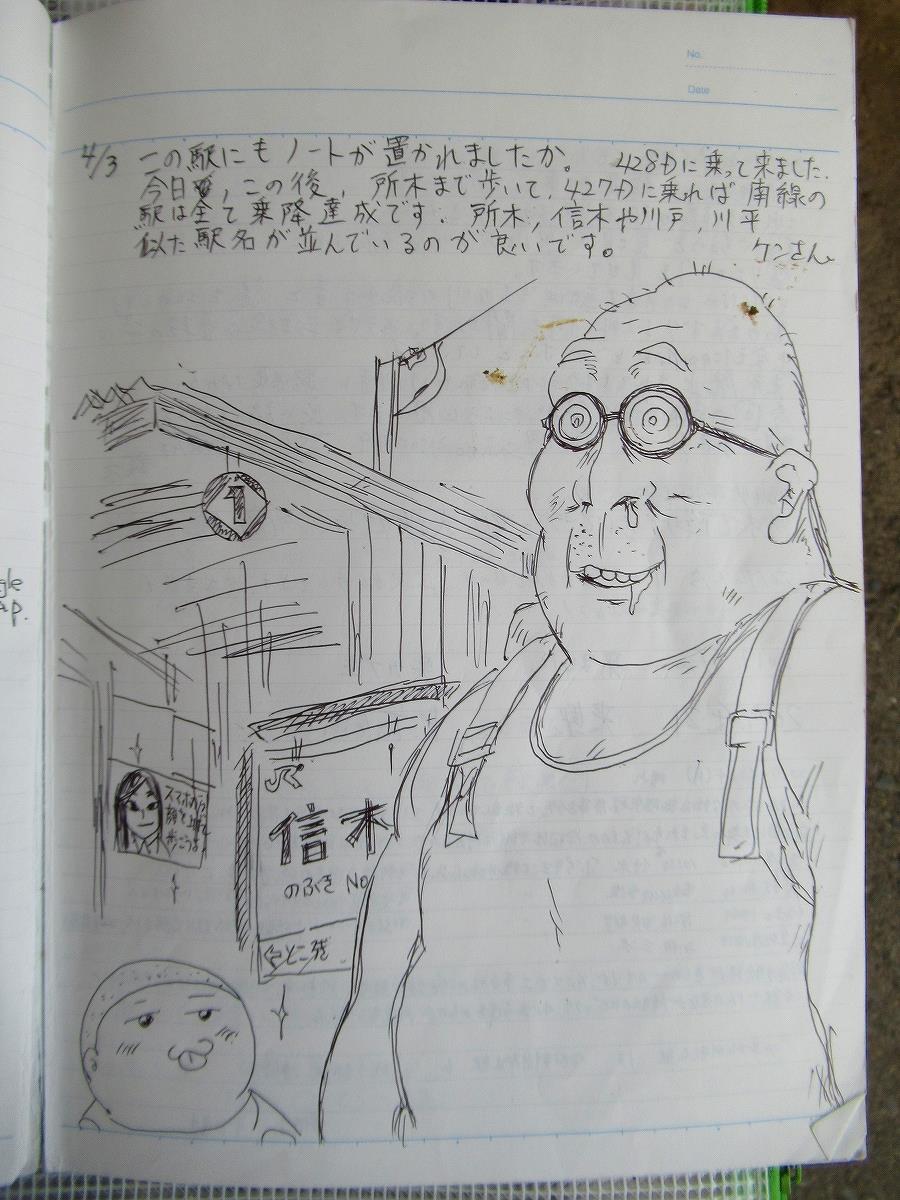 No.
Date
4/3 この駅にもノートが置かれましたか。 428Dに乗って来ました.
今日は, この後, 所木まで歩いて, 427Dに乗れば 南線の
駅は全て乗降達成です. 所木, 信木や川戸, 川平
似た駅名が並んでいるのが良いです。 ケンさん
1
スマホから
顔を上げて
歩こうよ
JR
信木
のぶき No
gle
ap.